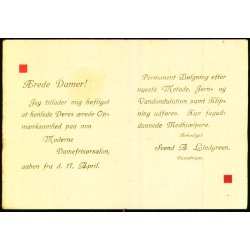 Ærede Damer!
Jeg tillader mig høfligst
at henlede Deres ærede Op-
mærksomhed paa min
Moderne
Damefrisørsalon,
aaben fra d. 17. April.
Permanent Bølgning efter
nyeste Metode, Jern- og
Vandondulation samt Klip-
ning udføres. Kun fagud-
dannede Medhjælpere.
Ærbødigst
Svend B. Lindgreen,
Damefrisør.